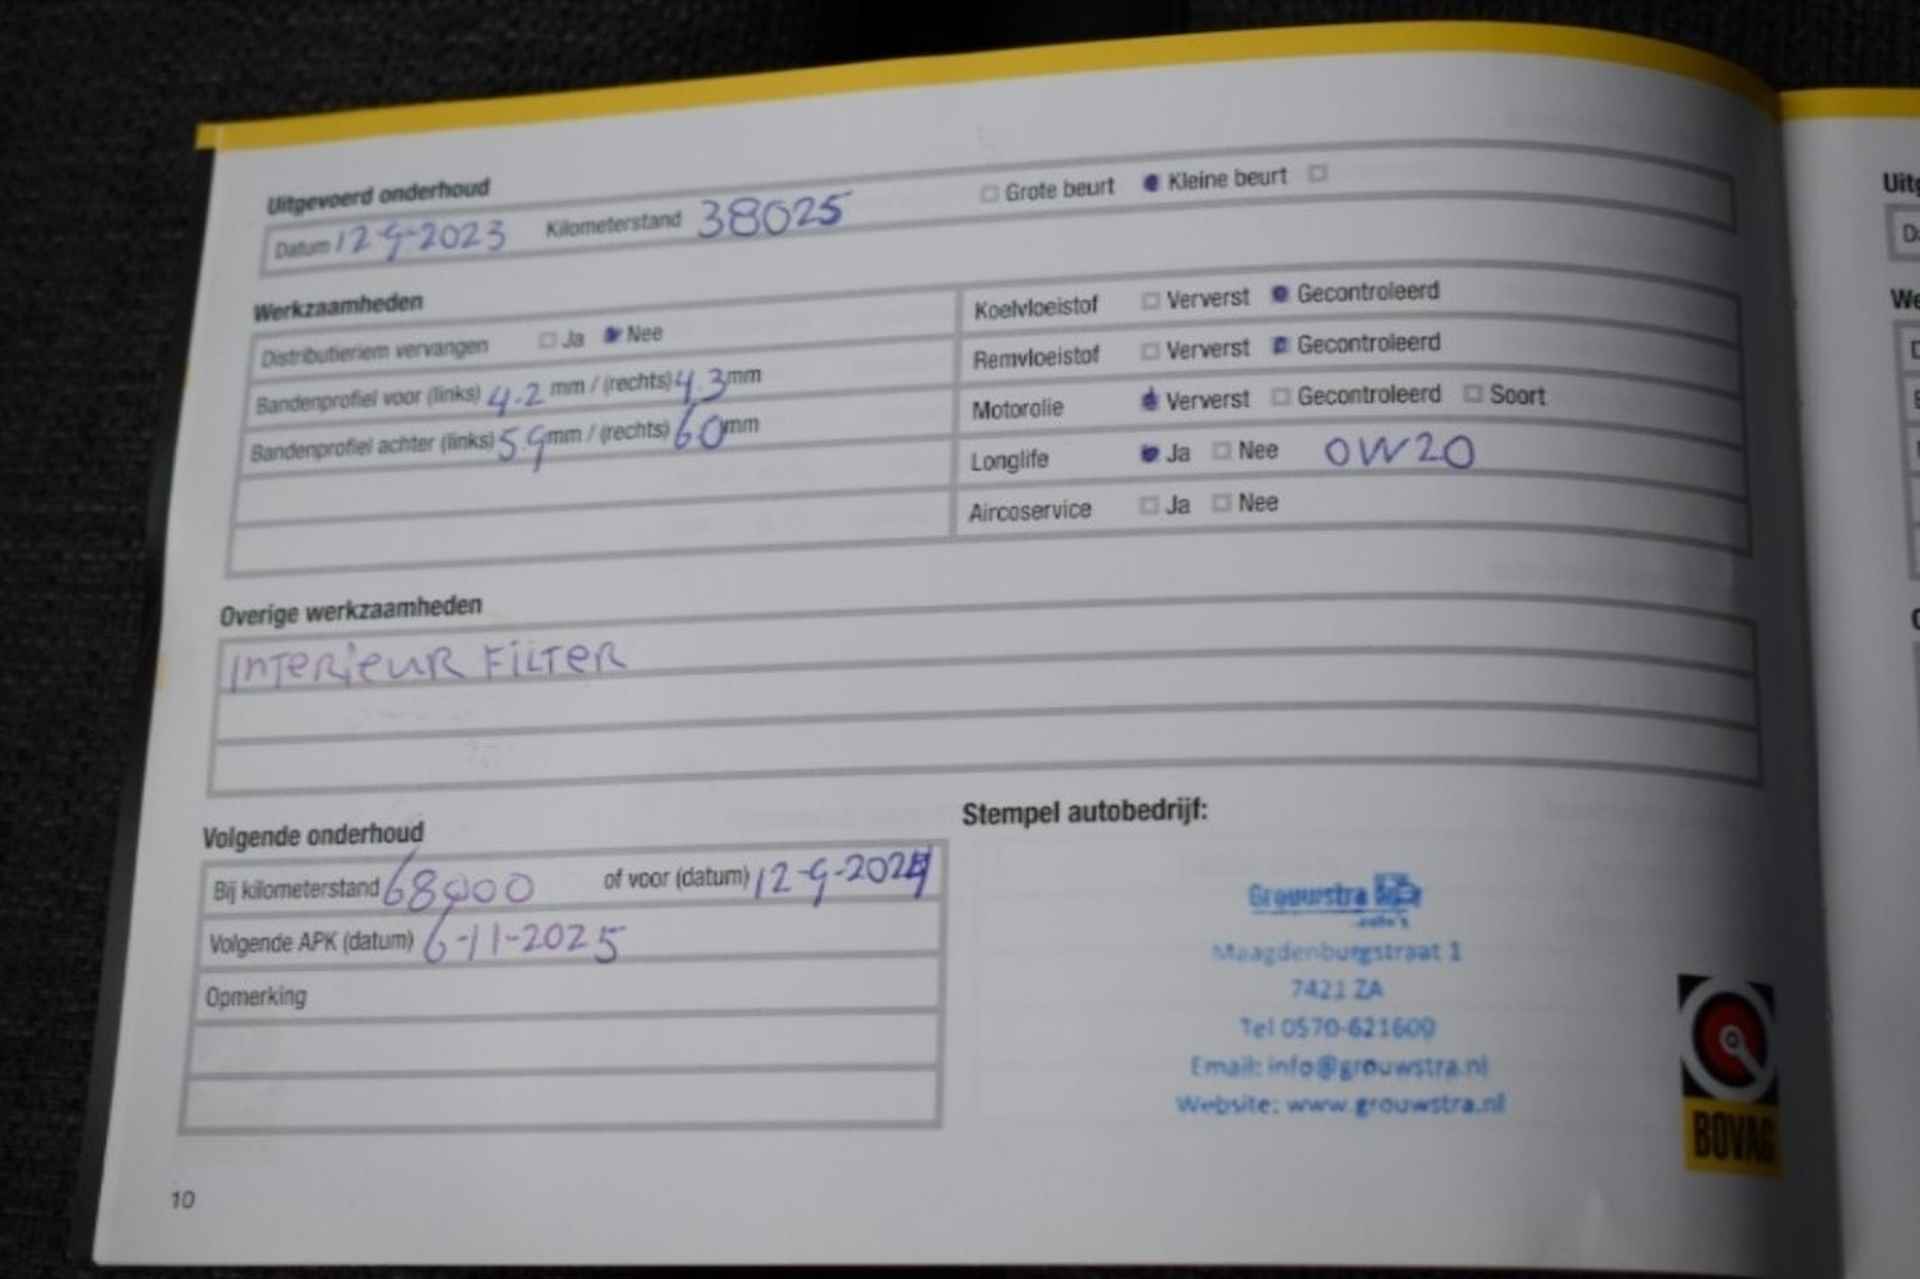 Uitgevoerd onderhoud
Datum 12-9-2023 Kilometerstand 38025 Grote beurt Kleine beurt
Werkzaamheden
Distributieriem vervangen Ja Nee
Bandenprofiel voor (links) 4.2 mm / (rechts) 4.3 mm
Bandenprofiel achter (links) 5.9 mm / (rechts) 60 mm
Koelvloeistof Ververst Gecontroleerd
Remvloeistof Ververst Gecontroleerd
Motorolie Ververst Gecontroleerd Soort
Longlife Ja Nee 0W20
Aircoservice Ja Nee
Overige werkzaamheden
INTERIEUR FILTER
Volgende onderhoud
Bij kilometerstand 68000 of voor (datum) 12-9-2024
Volgende APK (datum) 6-11-2025
Opmerking
Stempel autobedrijf:
Grouwstra
Maagdenburgstraat 1
7421 ZA
Tel 0570-621600
Email: info@grouwstra.nl
Website: www.grouwstra.nl
BOVAG
10